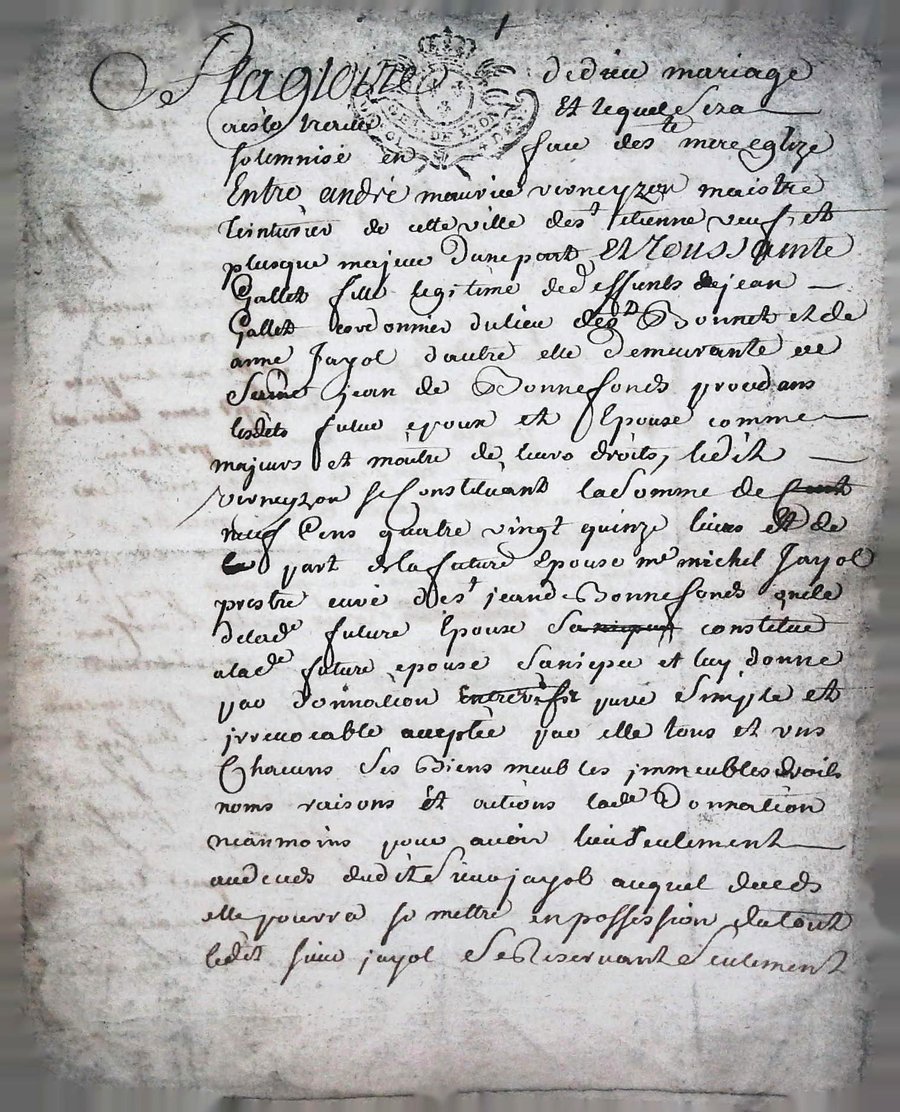 A la gloire de dieu mariage
et lequel sera
solemnisé en face de ste mere eglize
Entre andré maurice virneyzon maistre
teinturier de cette ville de st etienne veuf et
plusque majeur d'une part et Toussainte
Gallet fille legitime de deffunts jean
Gallet cordonnier du lieu de st Bonnet et de
anne Jayol d'autre elle demeurante au
jean de Bonnefonds procedans
lesdits futur epoux et Epouse comme
majeurs et maitre de leurs droits, ledit
virneyzon se Constituant la Somme de
neuf Cens quatre vingt quinze livres et de
la part de la future Epouse mre michel Jayol
prestre curé de st jean de Bonnefonds oncle
de lade future Epouse constitue
a lade future epouse sa niepce et luy donne
par donnation entrevifs pure Simple et
jrrevocable acceptée par elle tous et uns
Chacuns ses Biens meubles jmmeubles droits
noms raisons et actions lade Donnation
neanmoins pour avoir lieu seulement
au deceds dudit Sieur jayol auquel deceds
elle pourra se mettre en possession du tout
ledit sieur jayol se Reservant Seulement